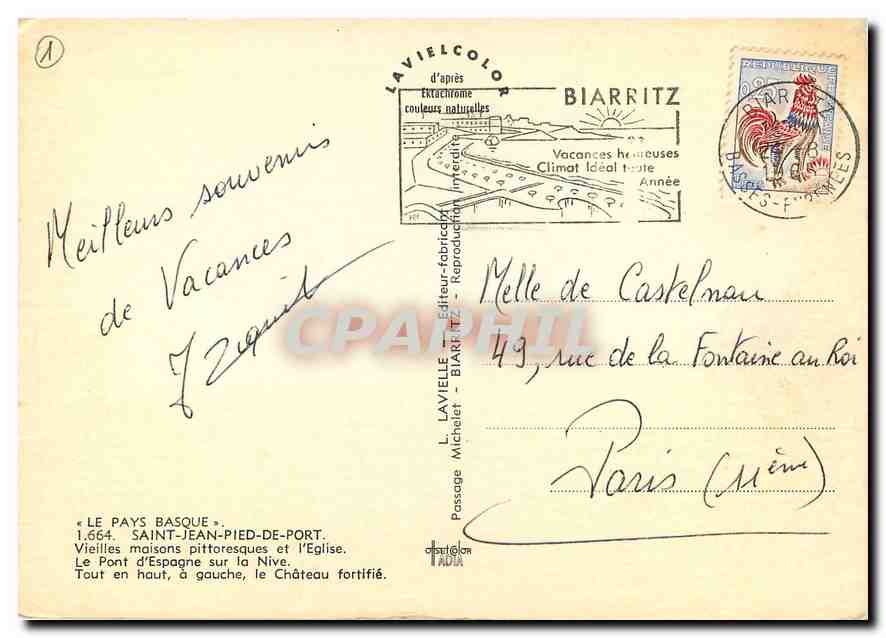 1
LAVIELCOLOR
d'après
Ektachrome
couleurs naturelles
BIARRITZ
Vacances heureuses
Climat Idéal toute
Année
REPUBLIQUE FRANCAISE
0,25
BIARRITZ
BASSES-PYRENEES
Meilleurs souvenirs
de Vacances
L. LAVIELLE - Editeur-fabricant
Passage Michelet - BIARRITZ - Reproduction interdite
Melle de Castelnau
49, rue de la Fontaine au Roi
Paris (11ème)
CPAPHIL
« LE PAYS BASQUE ».
1.664. SAINT-JEAN-PIED-DE-PORT.
Vieilles maisons pittoresques et l'Eglise.
Le Pont d'Espagne sur la Nive.
Tout en haut, à gauche, le Château fortifié.
OFFSETCOLOR
IADIA